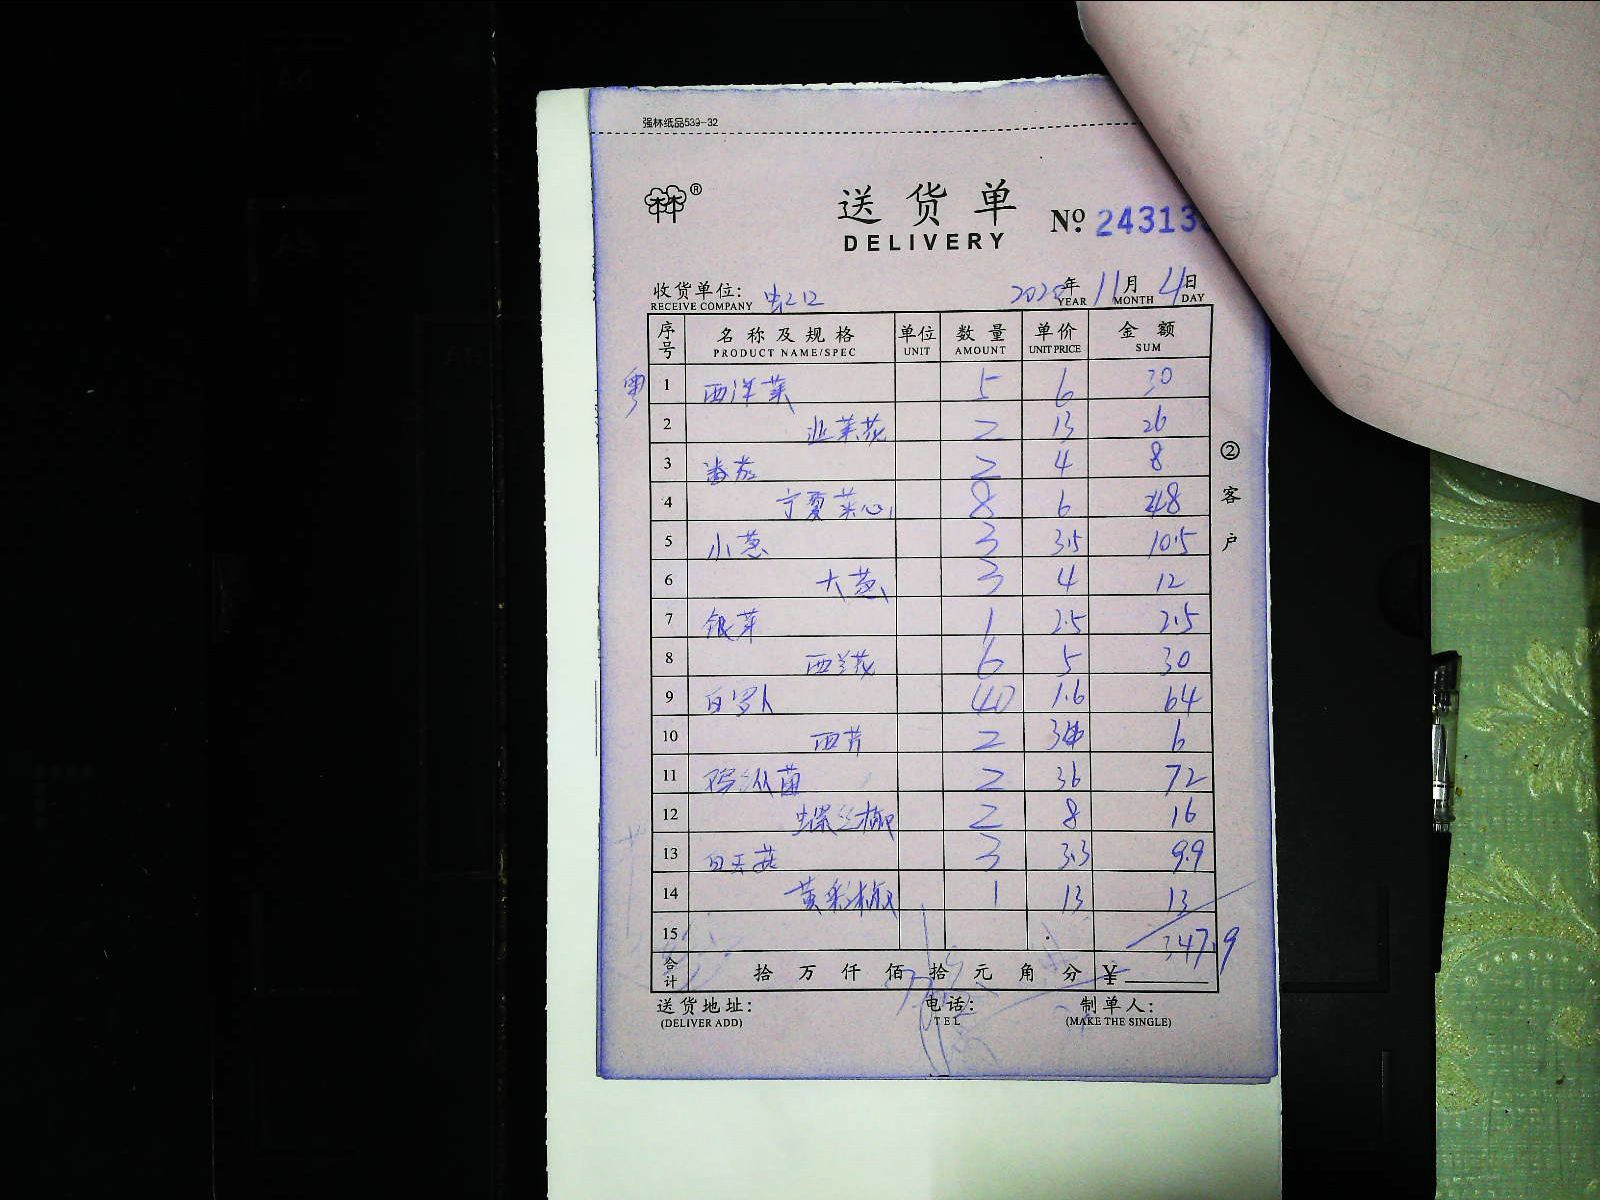 强林纸品539-32
林®
送货单
DELIVERY
№ 24313
收货单位: 虹212
RECEIVE COMPANY
2020年11月4日
YEAR MONTH DAY
序号 名称及规格 单位 数量 单价 金额
PRODUCT NAME/SPEC UNIT AMOUNT UNIT PRICE SUM
粤 1 西洋菜 5 6 30
2 韭菜花 2 13 26
3 番茄 2 4 8
4 宁夏菜心 8 6 48
5 小葱 3 3.5 10.5
6 大葱 3 4 12
7 银芽 1 2.5 2.5
8 西兰花 6 5 30
9 白罗卜 40 1.6 64
10 西芹 2 3 6
11 鸡纵菌 2 36 72
12 螺丝椒 2 8 16
13 白玉菇 3 3.3 9.9
14 黄彩椒 1 13 13
15 347.9
合计 拾 万 仟 佰 拾 元 角 分 ¥
②客户
送货地址: 电话: 制单人:
(DELIVER ADD) TEL (MAKE THE SINGLE)